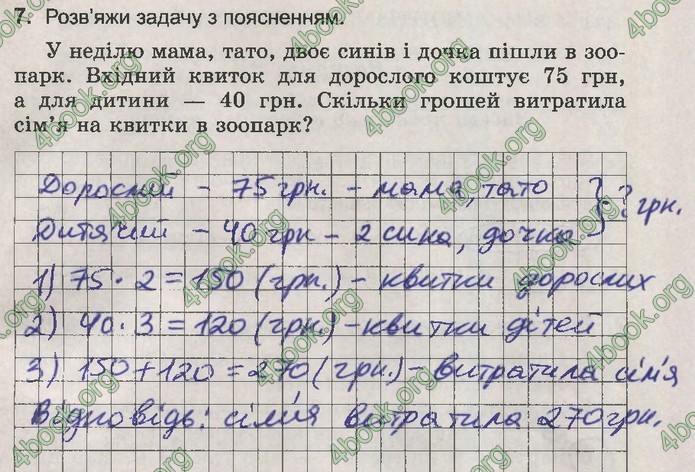 7. Розв'яжи задачу з поясненням.
У неділю мама, тато, двоє синів і дочка пішли в зоо-
парк. Вхідний квиток для дорослого коштує 75 грн,
а для дитини — 40 грн. Скільки грошей витратила
сім'я на квитки в зоопарк?
Дорослий - 75 грн. - мама, тато
} ? грн.
Дитячий - 40 грн - 2 сина, дочка
1) 75 · 2 = 150 (грн.) - квитки дорослих
2) 40 · 3 = 120 (грн.) - квитки дітей
3) 150 + 120 = 270 (грн.) - витратила сім'я
Відповідь: сім'я витратила 270 грн.
4book.org